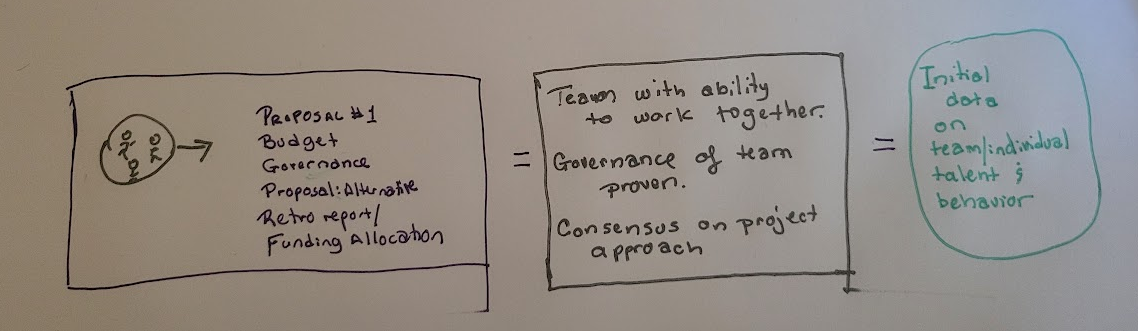 PROPOSAL #1
Budget
Governance
Proposal: Alternative
Retro report/
Funding Allocation
=
Team with ability
to work together.
Governance of team
proven.
Consensus on project
approach
=
Initial
data
on
team/individual
talent &
behavior